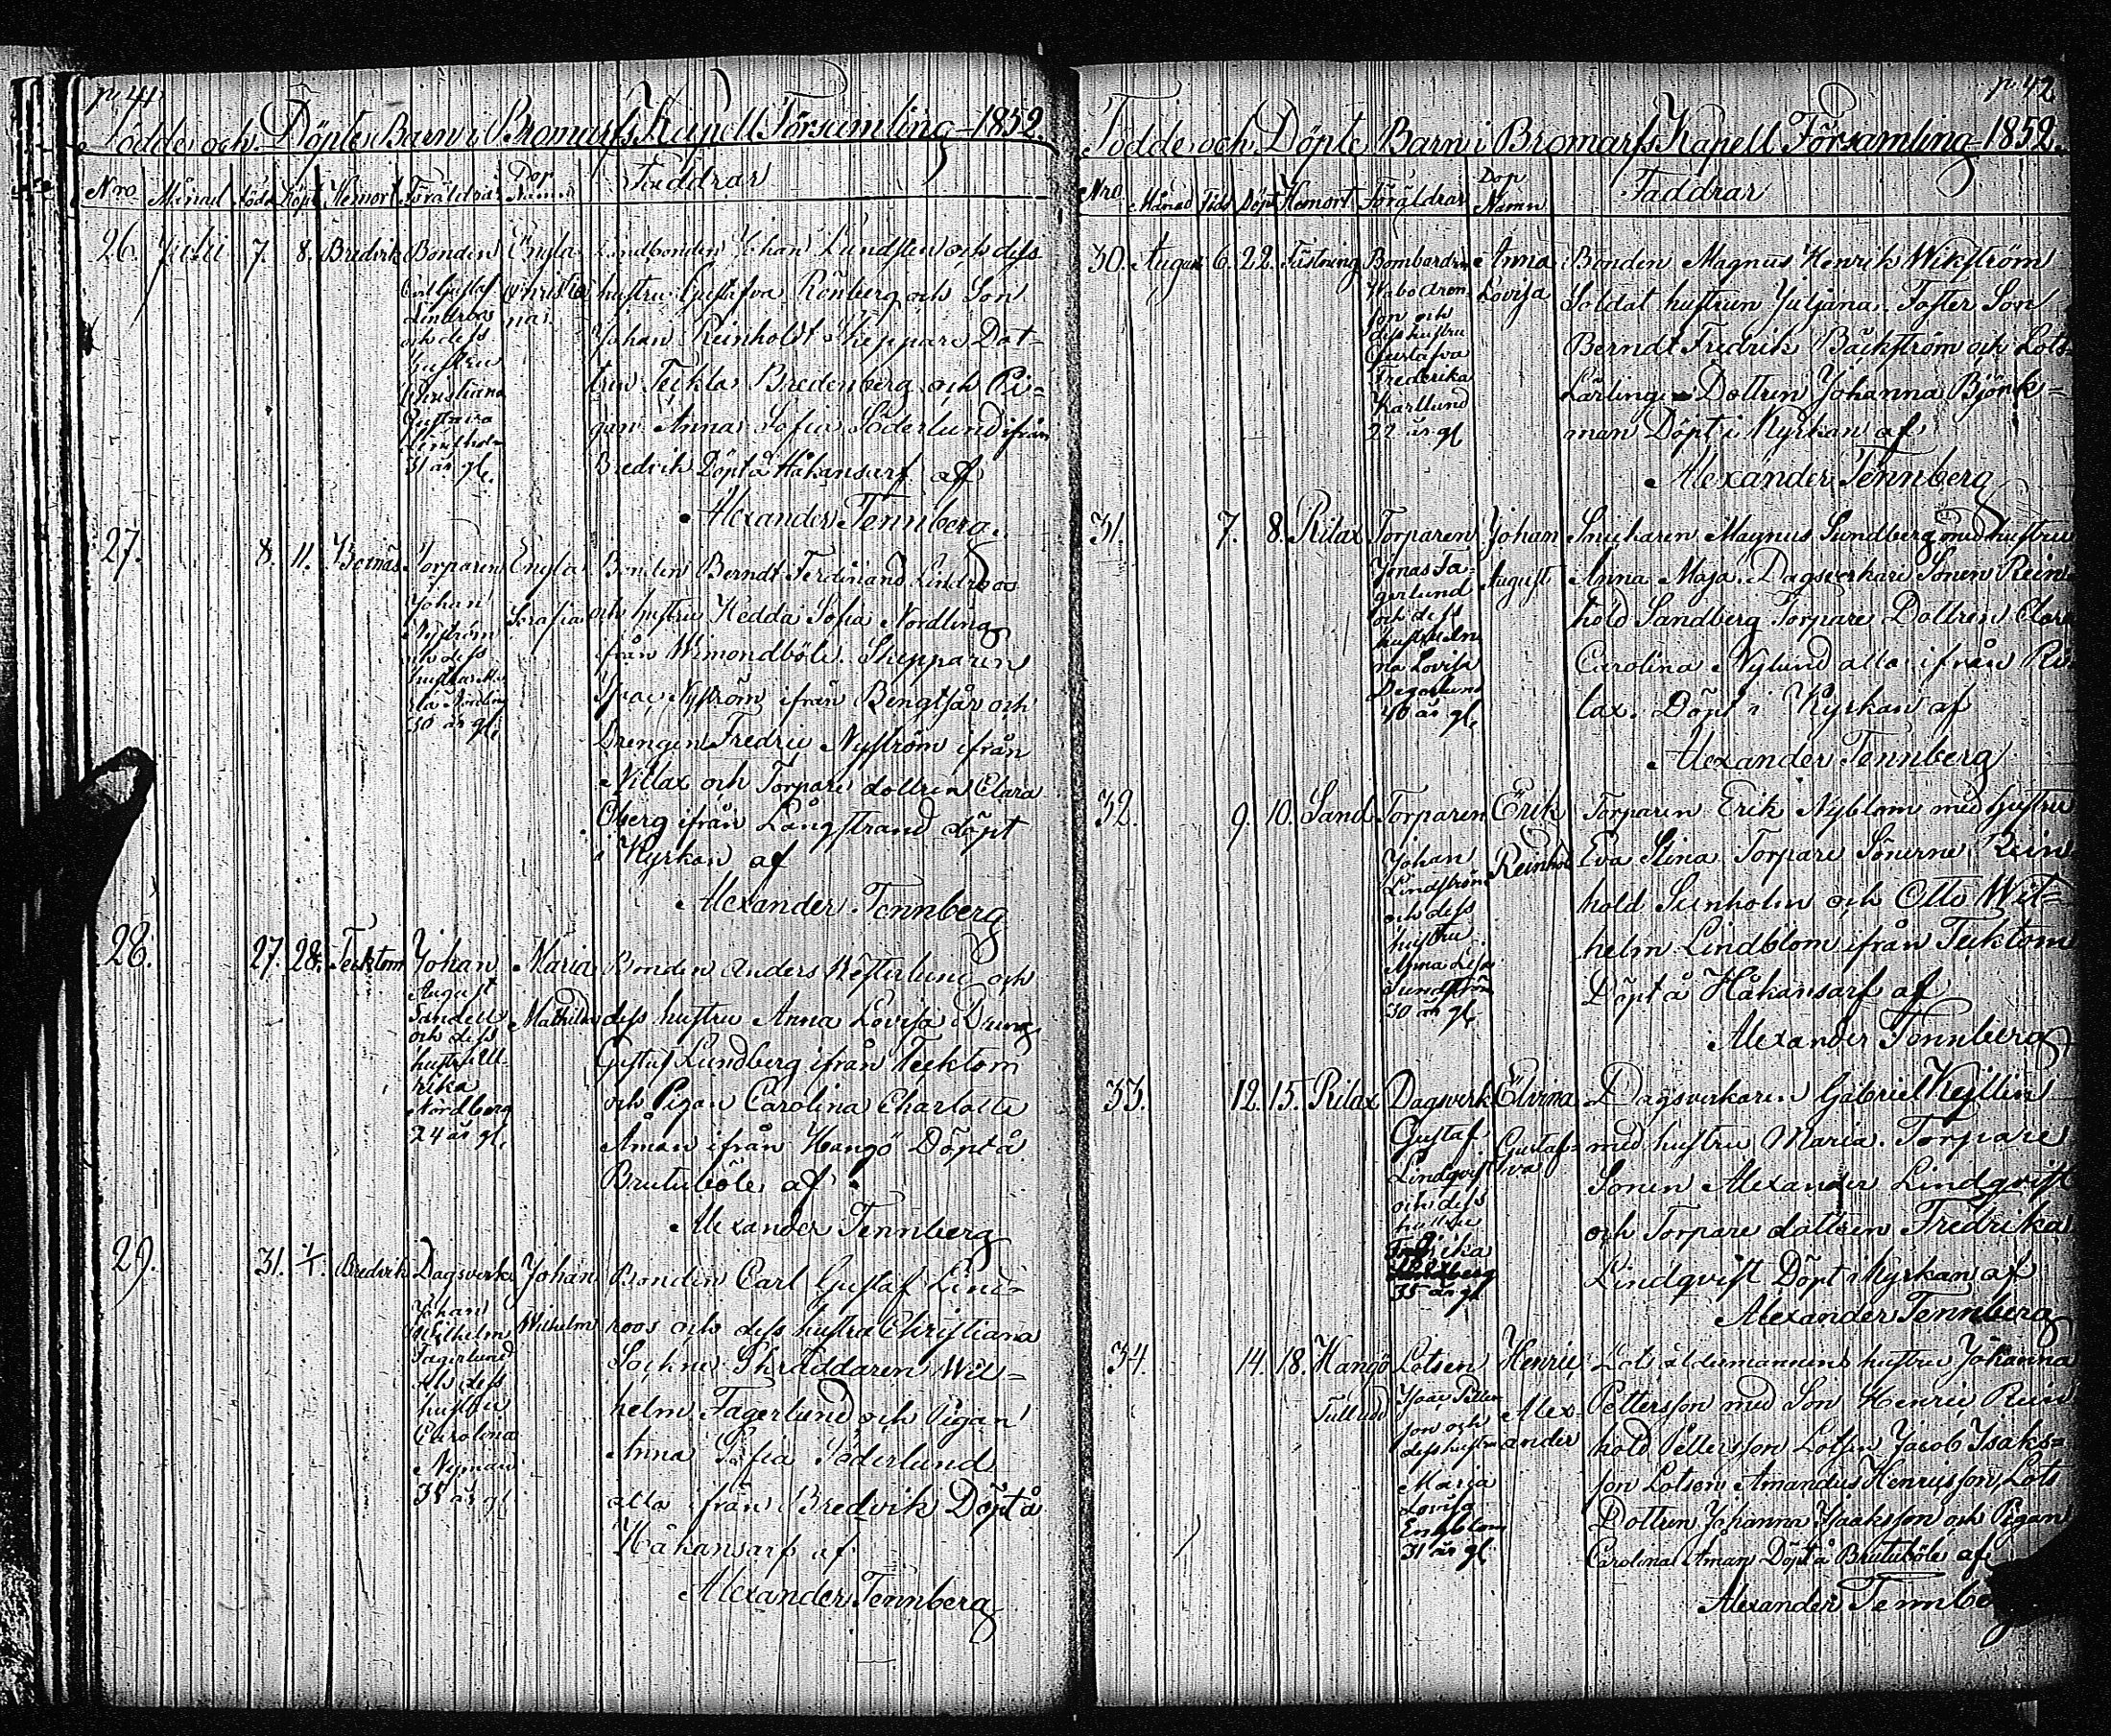 p. 41.
Födde och Döpte Barn i Bromarfs Kapell Församling 1852.
Nro Månad Född Döpt Hemort Föräldrar Dop Namn Faddrar
26. Juli 7. 8. Bredvik Bonden Carl Gustaf Lindroos och dess hustru Christiana Gustava 31 år gl.
Engla Christina
Bonden Johan Lundsten och dess
hustru Gustafva Rönberg och Son
Johan Reinholdt Skeppare Dot-
tren Teckla Bredenberg och Pi-
gan Anna Sofia Söderlund ifrån
Bredvik Döpt å Håkansarf af
Alexander Tennberg.
27. 8. 11. Torparen Johan Nyström och dess hustru 30 år gl.
Engla Serafia
Bonden Berndt Ferdinand Lindroos
och hustru Hedda Sofia Nordling
ifrån Wimondböle. Skepparen
Isac Nyström ifrån Bengtsår och
Drengen Fredric Nyström ifrån
Nitlax och Torpare dottren Clara
Öberg ifrån Långstrand döpt
i Kyrkan af
Alexander Tennberg
28. 27. 28. Tecktom Johan August Sandell och dess hustru Ulrika Nordberg 24 år gl.
Maria Mathilda
Bonden Anders Westerlund och
dess hustru Anna Lovisa Dreng
Gustaf Lundberg ifrån Tecktom
och Pigan Carolina Charlotta
Åman ifrån Hangö Döpt å
Brutuböle af
Alexander Tennberg
29. 31. 1/. Bredvik Dagsverk. Johan Wilhelm Fagerlund och dess hustru Carolina Nyman 35 år gl
Johan Wilhelm
Bonden Carl Gustaf Lind-
roos och dess hustru Christiana
Sockne Skräddaren Wil-
helm Fagerlund och Pigan
Anna Sofia Söderlund
alla ifrån Bredvik Döpt å
Håkansarf af
Alexander Tennberg
p. 42
Födde och Döpte Barn i Bromarfs Kapell Församling 1852.
Nro Månad Föds Döpt Hemort Föräldrar Dop Namn Faddrar
30. August 6. 22. Fästning och dess hustru Gustafva Frederika Karllund 22 år gl
Anna Lovisa
Bonden Magnus Henrik Wikström
Soldat hustrun Juljana. Foster Son
Berndt Fredrik Bäckström och Lots
Lärlings Dottren Johanna Björk-
man Döpt i Kyrkan af
Alexander Tennberg
31. 7. 8. Rilax Torparen Jonas Fagerlund och dess hustru Anna Lovisa 40 år gl.
Johan August
Snickaren Magnus Sundberg med hustru
Anna Maja. Dagsverkare Sonen Rein
hold Sandberg Torpare Dottren Clara
Carolina Nylund alla ifrån Ri
lax. Döpt i Kyrkan af
Alexander Tennberg
32. 9. 10. Sand Torparen Johan Lindström och dess hustru Anna Lisa Sundström 30 år gl
Erik Reinhold
Torparen Erik Nyblom med hustru
Eva Stina Torpare Sönerne Rein
hold Sunholm och Otto Wil-
helm Lindblom ifrån Tecktom
Döpt å Håkansarf af
Alexander Tennberg
33. 12. 15. Rilax Dagsverk. Gustaf Lindqvist och dess hustru Fredrika 35 år gl
Elvina Gustafva
Dagsverkaren Gabriel Kejllin
med hustru Maria. Torpare
Sonen Alexander Lindqvist
och Torpare dottren Fredrika
Lindqvist Döpt i Kyrkan af
Alexander Tennberg
34. 14. 18. Hangö Tulludd Lotsen Isac Petterson och dess hustru Maria Lovisa Engblom 31 år gl
Henric Alexander
Lots åldermannens hustru Johanna
Pettersson med Son Henric Rein
hold Pettersson Lotsen Jacob Isaks-
son Lotsen Amandus Henricsson, Lots
Dottren Johanna Isaksson och Pigan
Carolina Åman Döpt å Brutuböle af
Alexander